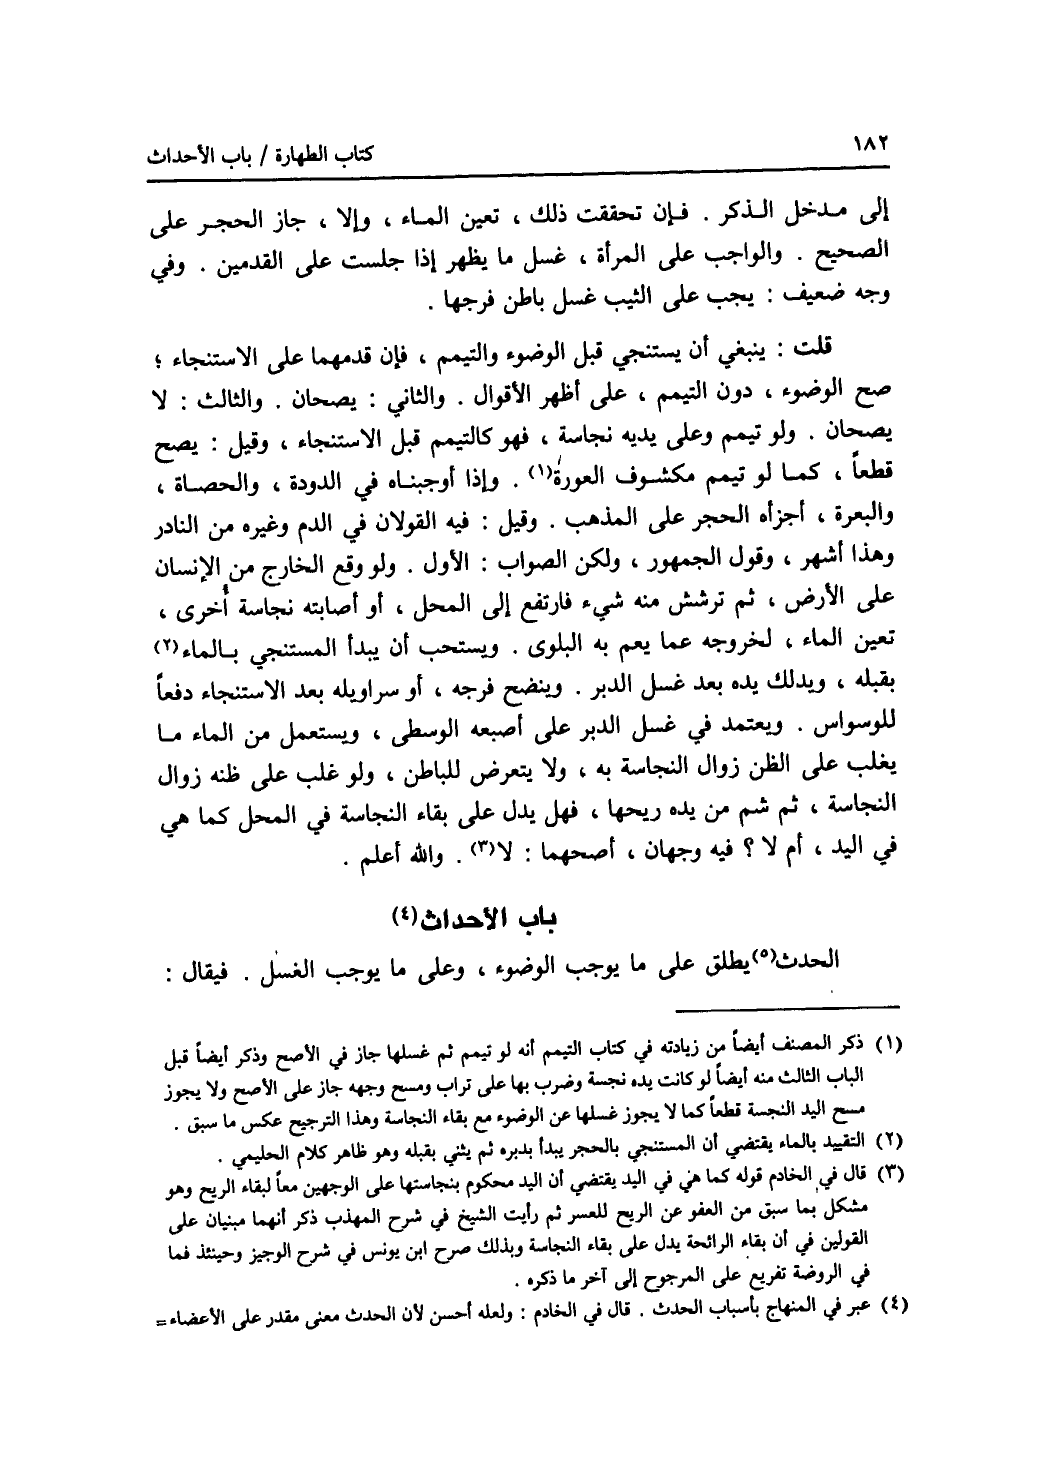 ١٨٢
كتاب الطهارة / باب الأحداث
إلى مـدخل الـذكر . فـإن تحققت ذلك ، تعين المـاء ، وإلا ، جاز الحجـر على
الصحيح . والواجب على المرأة ، غسل ما يظهر إذا جلست على القدمين . وفي
وجه ضعيف : يجب على الثيب غسل باطن فرجها .
قلت : ينبغي أن يستنجي قبل الوضوء والتيمم ، فإن قدمهما على الاستنجاء ؛
صح الوضوء ، دون التيمم ، على أظهر الأقوال . والثاني : يصحان . والثالث : لا
يصحان . ولو تيمم وعلى يديه نجاسة ، فهو كالتيمم قبل الاستنجاء ، وقيل : يصح
قطعاً ، كمـا لو تيمم مكشـوف العورة(١) . وإذا أوجبنـاه في الدودة ، والحصـاة ،
والبعرة ، أجزأه الحجر على المذهب . وقيل : فيه القولان في الدم وغيره من النادر
وهذا أشهر ، وقول الجمهور ، ولكن الصواب : الأول . ولو وقع الخارج من الإنسان
على الأرض ، ثم ترشش منه شيء فارتفع إلى المحل ، أو أصابته نجاسة أخرى ،
تعين الماء ، لخروجه عما يعم به البلوى . ويستحب أن يبدأ المستنجي بـالماء(٢)
بقبله ، ويدلك يده بعد غسل الدبر . وينضح فرجه ، أو سراويله بعد الاستنجاء دفعاً
للوسواس . ويعتمد في غسل الدبر على أصبعه الوسطى ، ويستعمل من الماء مـا
يغلب على الظن زوال النجاسة به ، ولا يتعرض للباطن ، ولو غلب على ظنه زوال
النجاسة ، ثم شم من يده ريحها ، فهل يدل على بقاء النجاسة في المحل كما هي
في اليد ، أم لا ؟ فيه وجهان ، أصحهما : لا(٣) . والله أعلم .
باب الأحداث(٤)
الحدث(٥)يطلق على ما يوجب الوضوء ، وعلى ما يوجب الغسل . فيقال :
(١) ذكر المصنف أيضاً من زيادته في كتاب التيمم أنه لو تيمم ثم غسلها جاز في الأصح وذكر أيضاً قبل
الباب الثالث منه أيضاً لو كانت يده نجسة وضرب بها على تراب ومسح وجهه جاز على الأصح ولا يجوز
مسح اليد النجسة قطعاً كما لا يجوز غسلها عن الوضوء مع بقاء النجاسة وهذا الترجيح عكس ما سبق .
(٢) التقييد بالماء يقتضي أن المستنجي بالحجر يبدأ بدبره ثم يثني بقبله وهو ظاهر كلام الحليمي .
(٣) قال في الخادم قوله كما هي في اليد يقتضي أن اليد محكوم بنجاستها على الوجهين معاً لبقاء الريح وهو
مشكل بما سبق من العفو عن الريح للعسر ثم رأيت الشيخ في شرح المهذب ذكر أنهما مبنيان على
القولين في أن بقاء الرائحة يدل على بقاء النجاسة وبذلك صرح ابن يونس في شرح الوجيز وحينئذ فما
في الروضة تفريع على المرجوح إلى آخر ما ذكره .
(٤) عبر في المنهاج بأسباب الحدث . قال في الخادم : ولعله أحسن لأن الحدث معنى مقدر على الأعضاء =